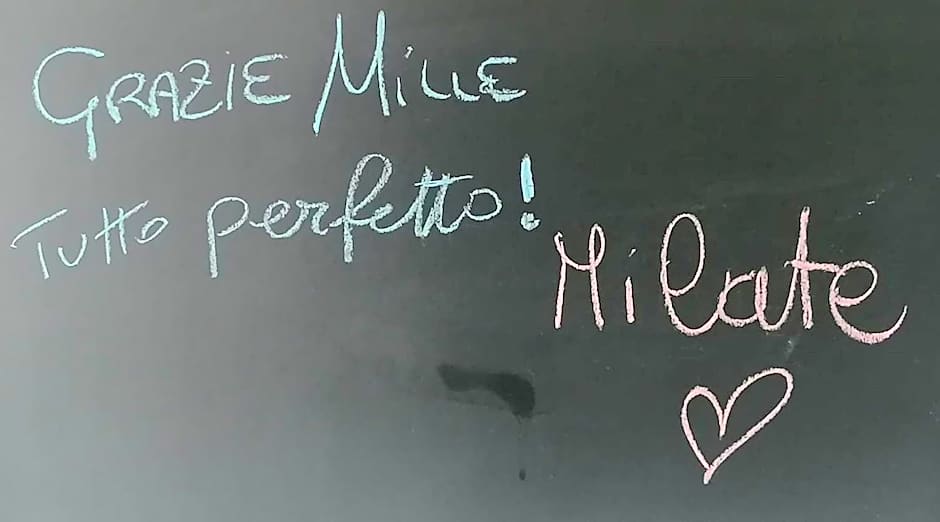 GRAZIE MILLE
Tutto perfetto!
Milate